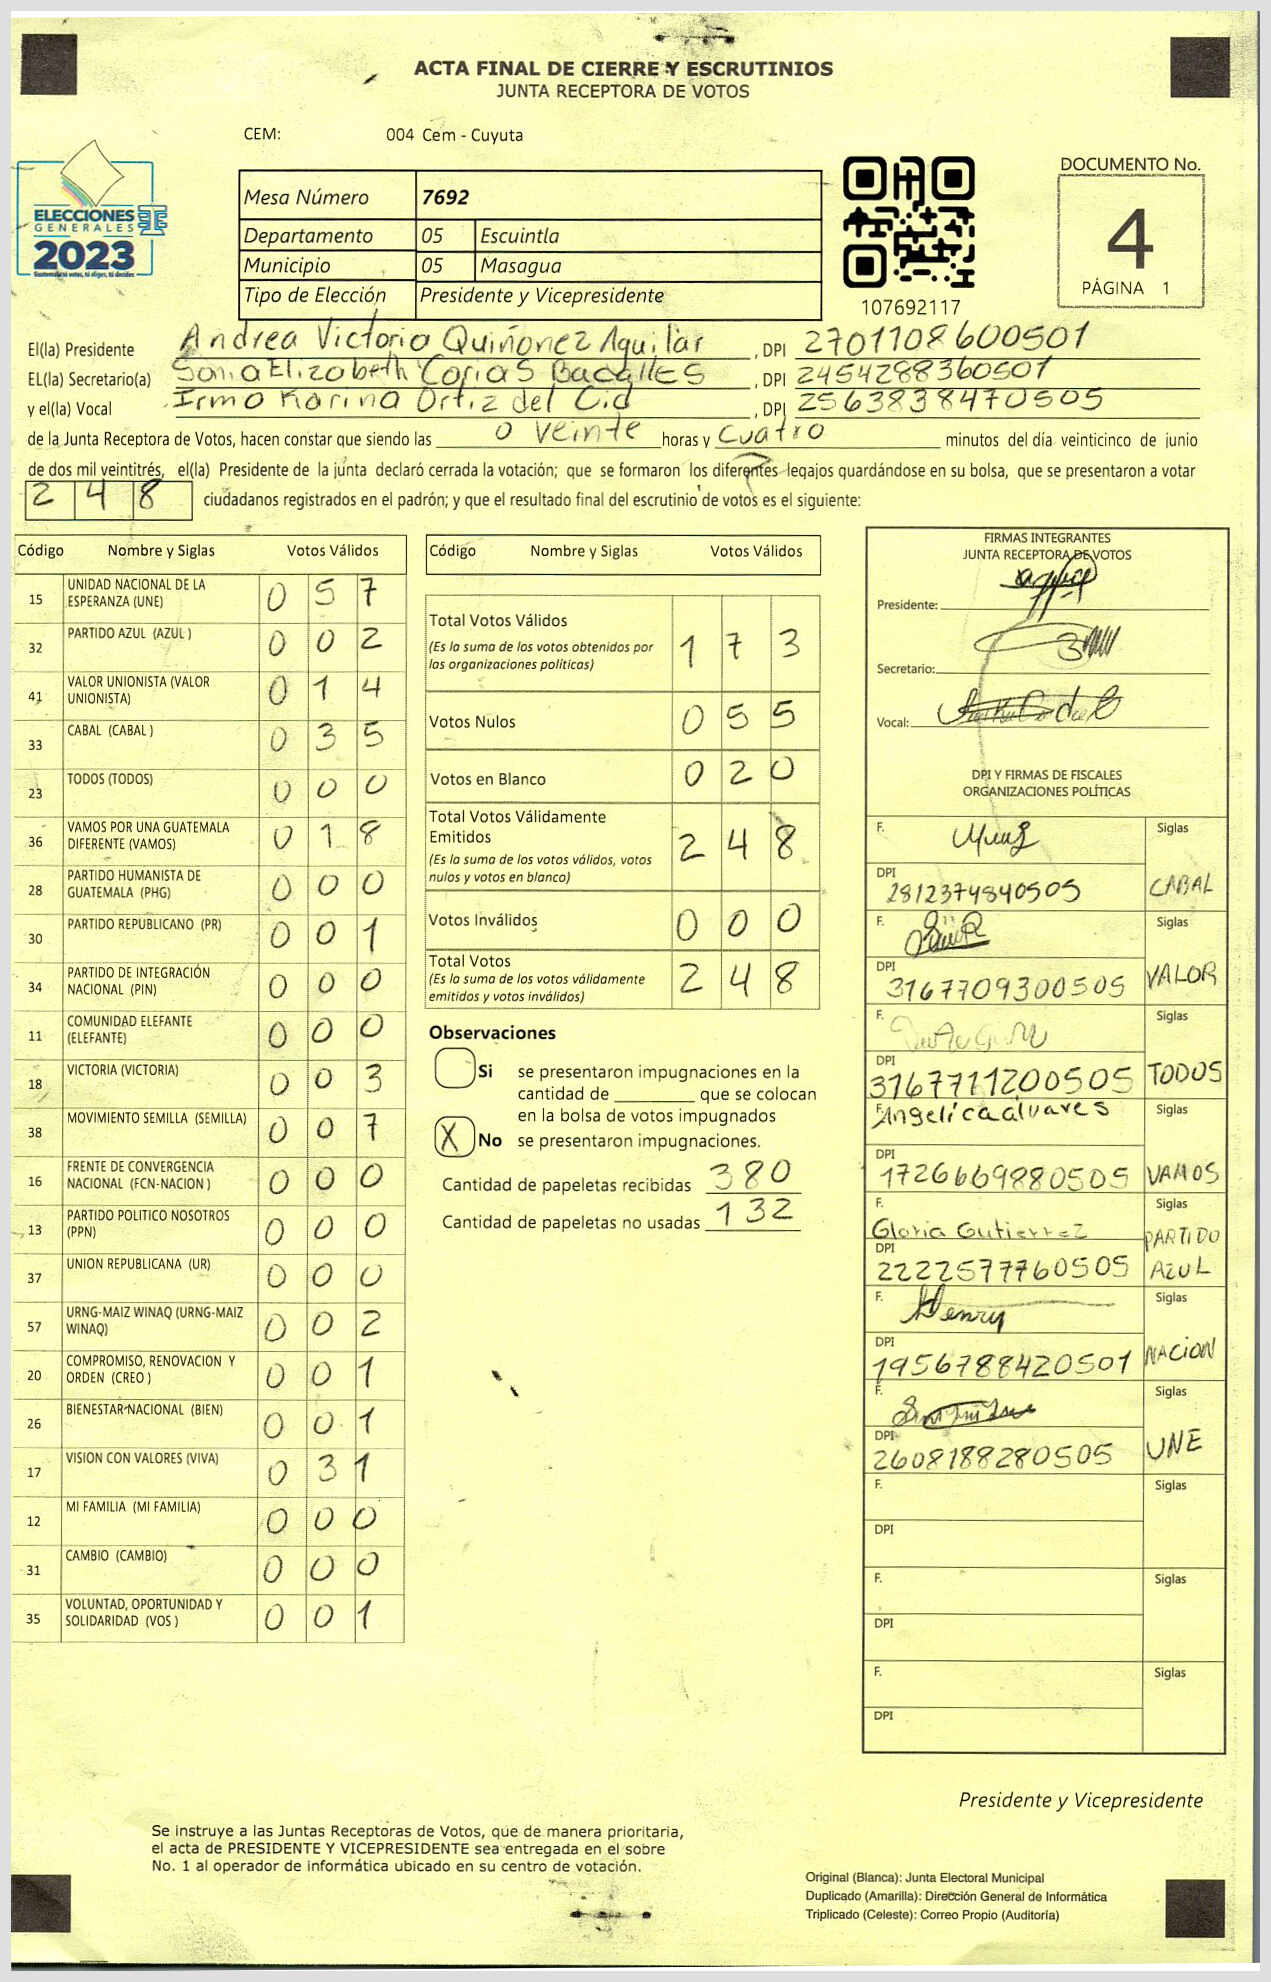 ACTA FINAL DE CIERRE Y ESCRUTINIOS
JUNTA RECEPTORA DE VOTOS
CEM: 004 Cem - Cuyuta
ELECCIONES
GENERALES
2023
Guatemala tú votas, tú eliges, tú decides
Mesa Número 7692
Departamento 05 Escuintla
Municipio 05 Masagua
Tipo de Elección Presidente y Vicepresidente
107692117
DOCUMENTO No.
4
PÁGINA 1
El(la) Presidente Andrea Victoria Quiñonez Aguilar , DPI 2701108600501
EL(la) Secretario(a) Sonia Elizabeth Corias Bacalles , DPI 2454288360501
y el(la) Vocal Irma Karina Ortiz del Cid , DPI 2563838470505
de la Junta Receptora de Votos, hacen constar que siendo las veinte horas y cuatro minutos del día veinticinco de junio
de dos mil veintitrés, el(la) Presidente de la junta declaró cerrada la votación; que se formaron los diferentes legajos quardándose en su bolsa, que se presentaron a votar
248 ciudadanos registrados en el padrón; y que el resultado final del escrutinio de votos es el siguiente:
Código Nombre y Siglas Votos Válidos
15 UNIDAD NACIONAL DE LA ESPERANZA (UNE) 0 5 7
32 PARTIDO AZUL (AZUL ) 0 0 2
41 VALOR UNIONISTA (VALOR UNIONISTA) 0 1 4
33 CABAL (CABAL ) 0 3 5
23 TODOS (TODOS) 0 0 0
36 VAMOS POR UNA GUATEMALA DIFERENTE (VAMOS) 0 1 8
28 PARTIDO HUMANISTA DE GUATEMALA (PHG) 0 0 0
30 PARTIDO REPUBLICANO (PR) 0 0 1
34 PARTIDO DE INTEGRACIÓN NACIONAL (PIN) 0 0 0
11 COMUNIDAD ELEFANTE (ELEFANTE) 0 0 0
18 VICTORIA (VICTORIA) 0 0 3
38 MOVIMIENTO SEMILLA (SEMILLA) 0 0 7
16 FRENTE DE CONVERGENCIA NACIONAL (FCN-NACION ) 0 0 0
13 PARTIDO POLITICO NOSOTROS (PPN) 0 0 0
37 UNION REPUBLICANA (UR) 0 0 0
57 URNG-MAIZ WINAQ (URNG-MAIZ WINAQ) 0 0 2
20 COMPROMISO, RENOVACION Y ORDEN (CREO ) 0 0 1
26 BIENESTAR NACIONAL (BIEN) 0 0 1
17 VISION CON VALORES (VIVA) 0 3 1
12 MI FAMILIA (MI FAMILIA) 0 0 0
31 CAMBIO (CAMBIO) 0 0 0
35 VOLUNTAD, OPORTUNIDAD Y SOLIDARIDAD (VOS ) 0 0 1
Código Nombre y Siglas Votos Válidos
Total Votos Válidos 1 7 3
(Es la suma de los votos obtenidos por
las organizaciones políticas)
Votos Nulos 0 5 5
Votos en Blanco 0 2 0
Total Votos Válidamente
Emitidos 2 4 8
(Es la suma de los votos válidos, votos
nulos y votos en blanco)
Votos Inválidos 0 0 0
Total Votos 2 4 8
(Es la suma de los votos válidamente
emitidos y votos inválidos)
Observaciones
Si se presentaron impugnaciones en la
cantidad de ________ que se colocan
en la bolsa de votos impugnados
X No se presentaron impugnaciones.
Cantidad de papeletas recibidas 380
Cantidad de papeletas no usadas 132
FIRMAS INTEGRANTES
JUNTA RECEPTORA DE VOTOS
Presidente:
Secretario:
Vocal:
DPI Y FIRMAS DE FISCALES
ORGANIZACIONES POLÍTICAS
F. Siglas
DPI 2812374840505 CABAL
F. Siglas
DPI 3167709300505 VALOR
F. Siglas
DPI 3167711200505 TODOS
F. Angelica alvares Siglas
DPI 1726669880505 VAMOS
F. Gloria Gutierrez Siglas
DPI 2222577760505 PARTIDO AZUL
F. Henry Siglas
DPI 1956788420501 NACION
F. Siglas
DPI 2608188280505 UNE
F. Siglas
DPI
F. Siglas
DPI
F. Siglas
DPI
Presidente y Vicepresidente
Se instruye a las Juntas Receptoras de Votos, que de manera prioritaria,
el acta de PRESIDENTE Y VICEPRESIDENTE sea entregada en el sobre
No. 1 al operador de informática ubicado en su centro de votación.
Original (Blanca): Junta Electoral Municipal
Duplicado (Amarilla): Dirección General de Informática
Triplicado (Celeste): Correo Propio (Auditoría)